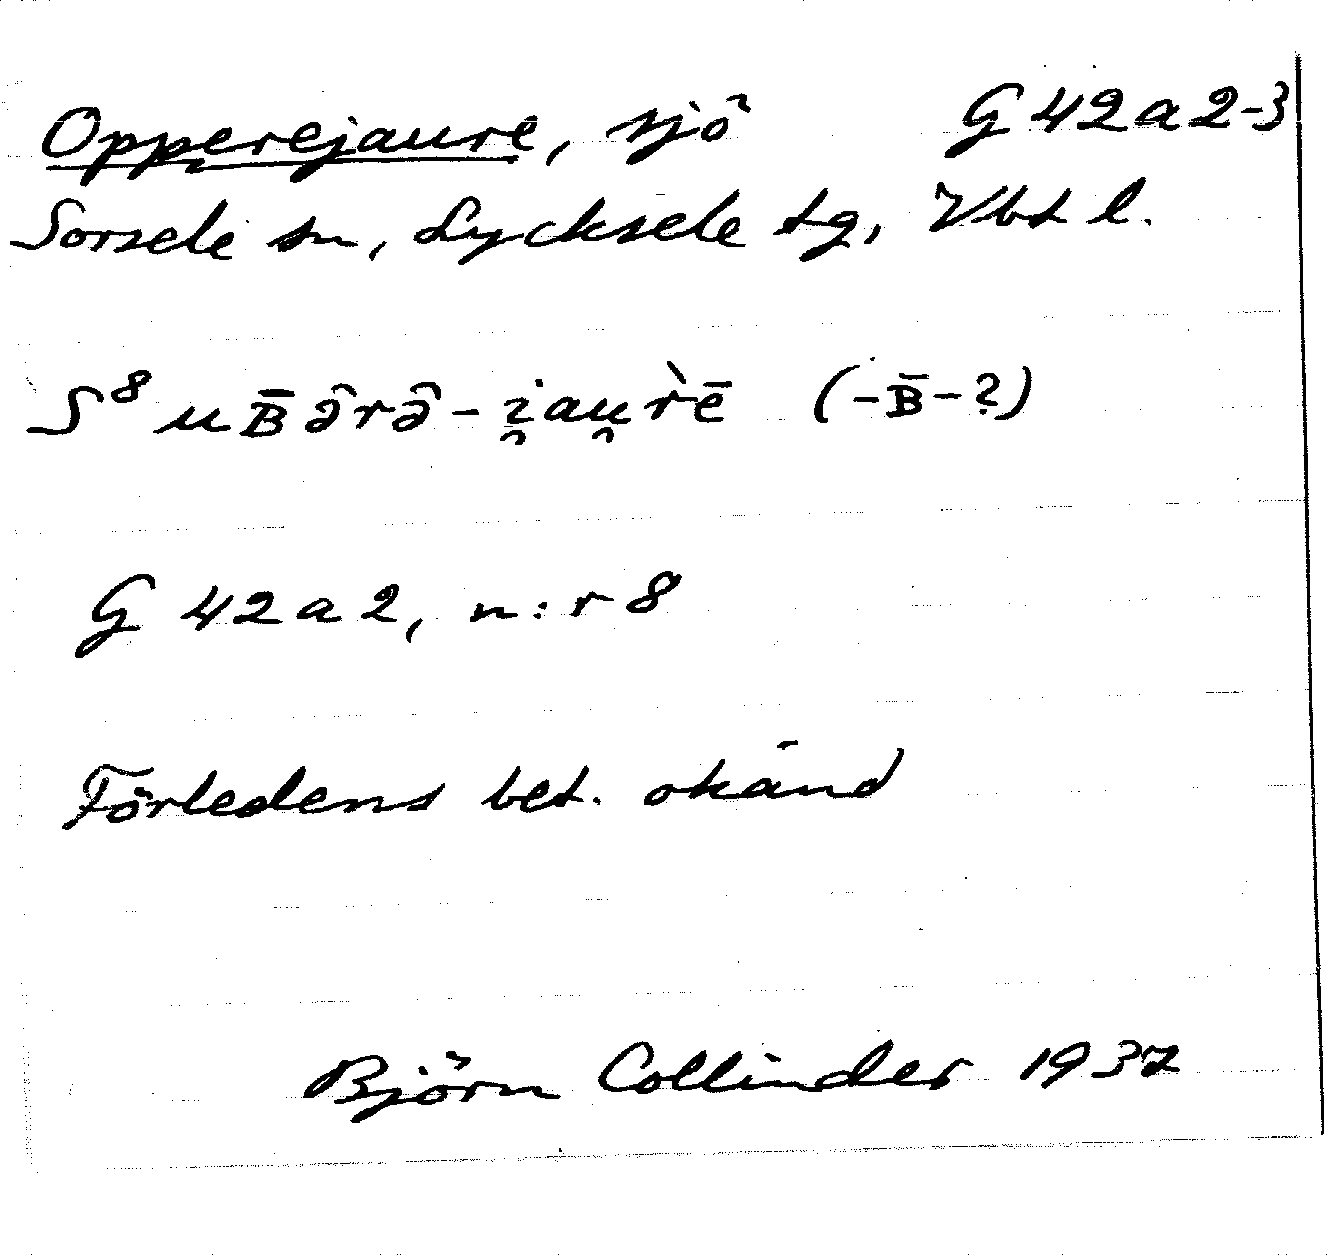 Opperejaure, sjö G 42 a 2-3
Sorsele sn, Lycksele tg, Vbt l.
S⁸ uʙ̄ə̑rə̑-i̯au̯r̀ē (-ʙ̄-?)
G 42 a 2, n:r 8
Förledens bet. okänd
Björn Collinder 1937